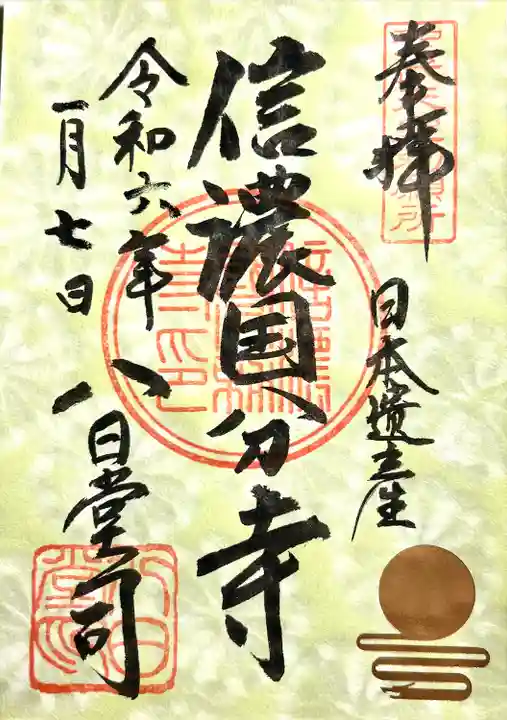 奉拝
日本遺産
信濃国分寺
令和六年
一月七日
八日堂司